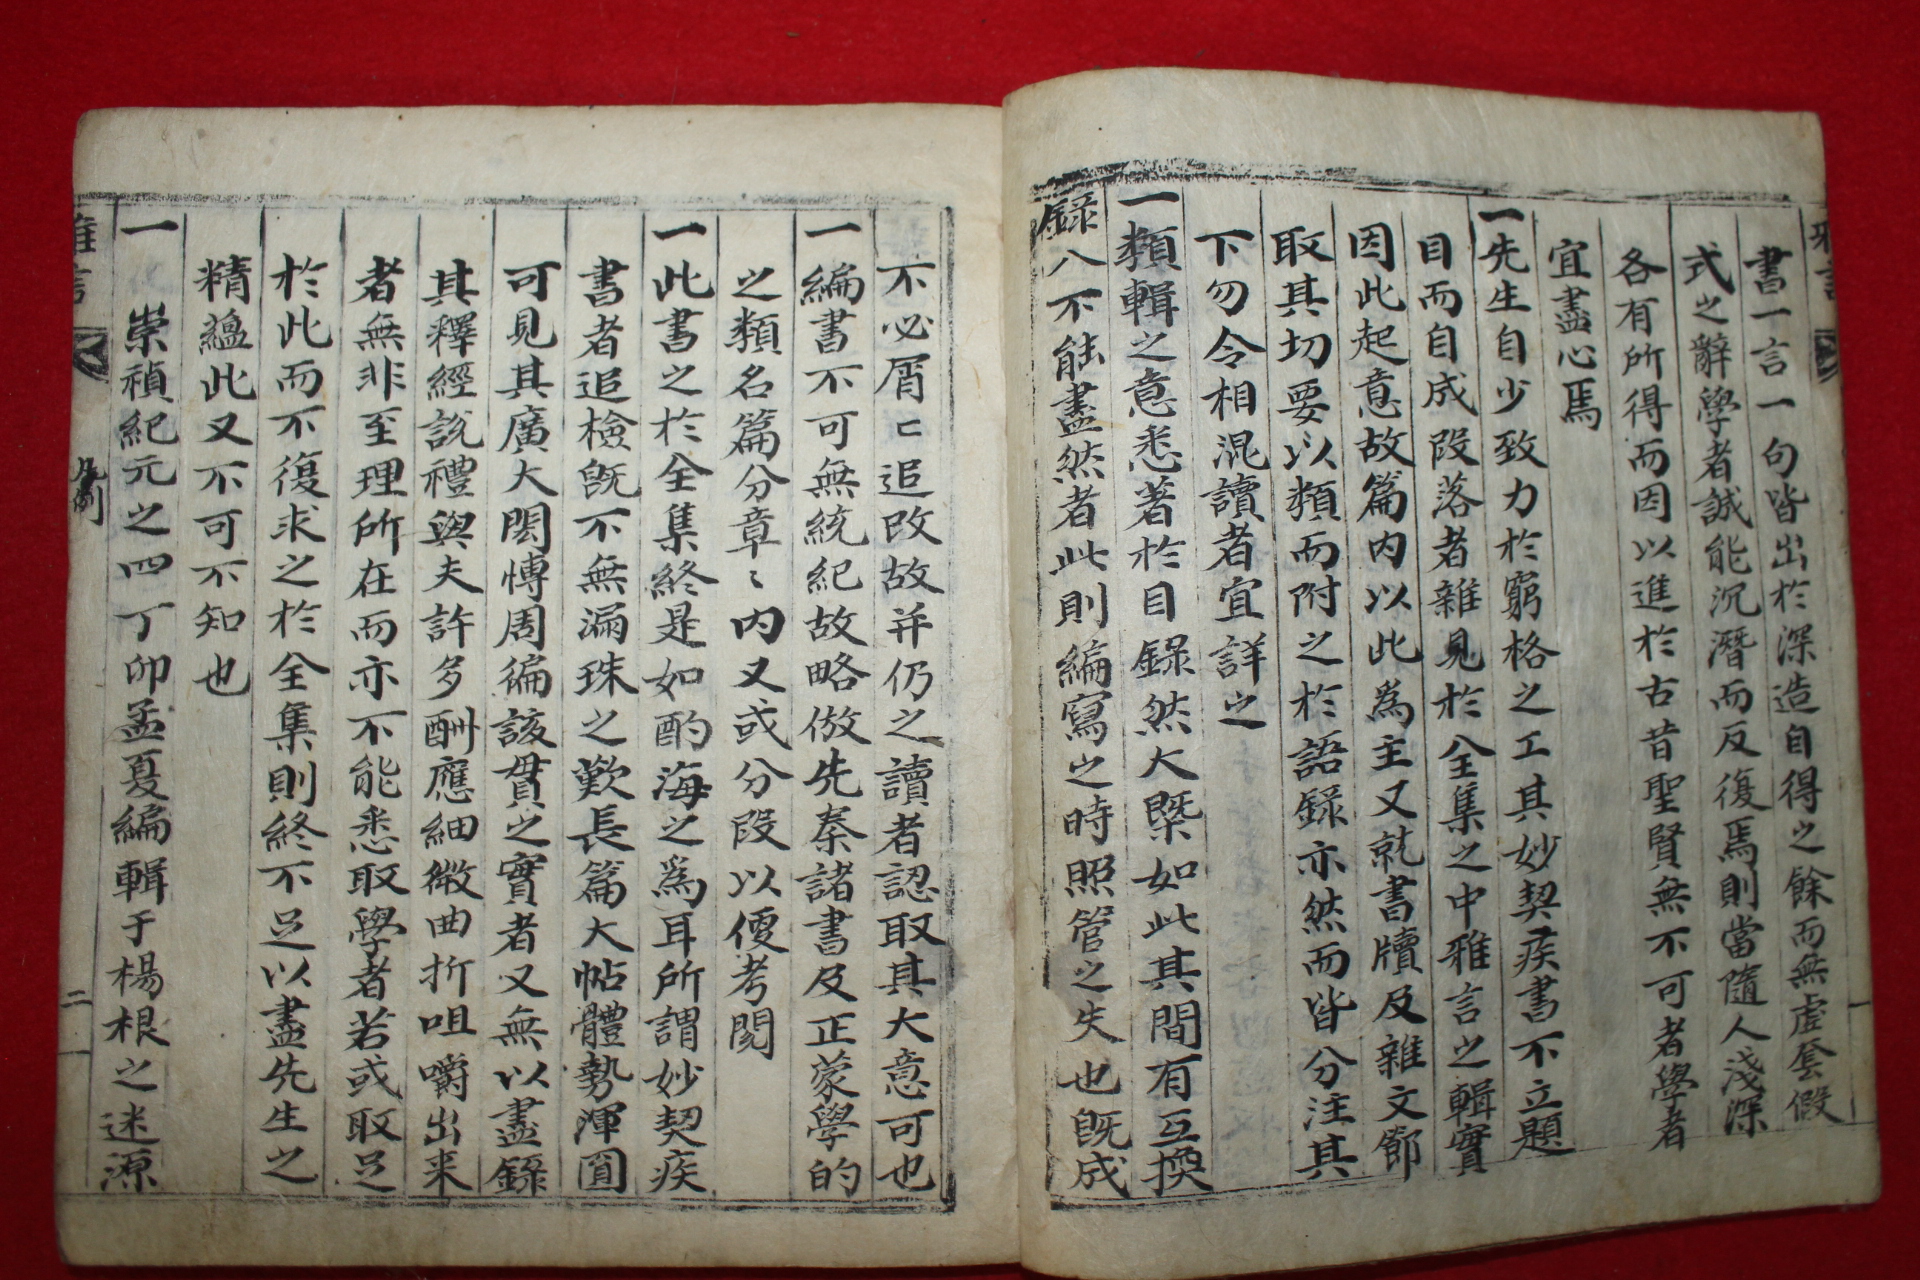 書一言一句皆出於深造自得之餘而無虛套假
式之辭學者誠能沉潛而反復焉則當隨人淺深
各有所得而因以進於古昔聖賢無不可者學者
宜盡心焉
一先生自少致力於窮格之工其妙契疾書不立題
目而自成段落者雜見於全集之中雅言之輯實
因此起意故篇内以此爲主又就書牘及雜文節
取其切要以類而附之於語録亦然而皆分注其
下勿令相混讀者宜詳之
一類輯之意悉著於目錄然大槩如此其間有互換
錄八不能盡然者此則編寫之時照管之失也旣成
不必屑〻追改故并仍之讀者認取其大意可也
一編書不可無統紀故略倣先秦諸書及正蒙學的
之類名篇分章〻内又或分段以便考閱
一此書之於全集終是如酌海之爲耳所謂妙契疾
書者追檢旣不無漏珠之歎長篇大帖體勢渾圓
可見其廣大閎愽周徧該貫之實者又無以盡錄
其釋經說禮與夫許多酬應細微曲折咀嚼出来
者無非至理所在而亦不能悉取學者若或取足
於此而不復求之於全集則終不足以盡先生之
精藴此又不可不知也
一 崇禎紀元之四丁卯孟夏編輯于楊根之迷源
雅言
凡例
二